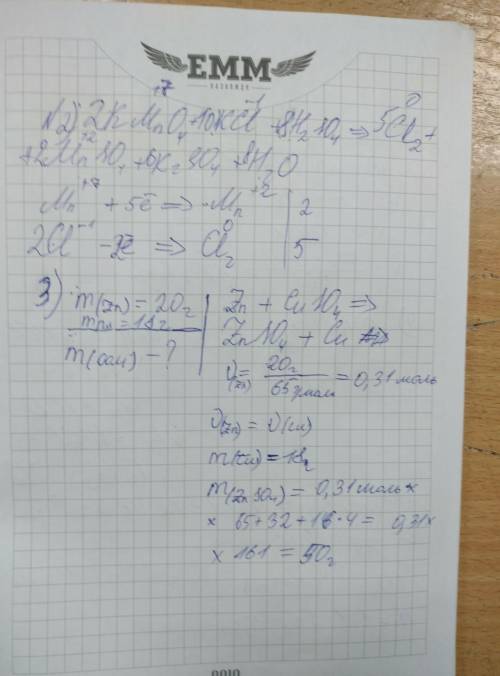 EMM
№2) 2K Mn⁺⁷O₄ + 10KCl⁻¹ + 8H₂SO₄ => 5Cl₂⁰ +
+ 2Mn⁺²SO₄ + 6K₂SO₄ + 8H₂O
Mn⁺⁷ + 5ē => Mn⁺² | 2
2Cl⁻¹ - 2ē => Cl₂⁰ | 5
3) m(Zn) = 20г | Zn + CuSO₄ =>
mпл = 18г | ZnSO₄ + Cu
m(соли) - ?
ν(Zn) = 20г / 65г/моль = 0,31 моль
ν(Zn) = ν(Cu)
m(Cu) = 18г
m(ZnSO₄) = 0,31 моль x
x 65+32+16·4 = 0,31x
x 161 = 50г